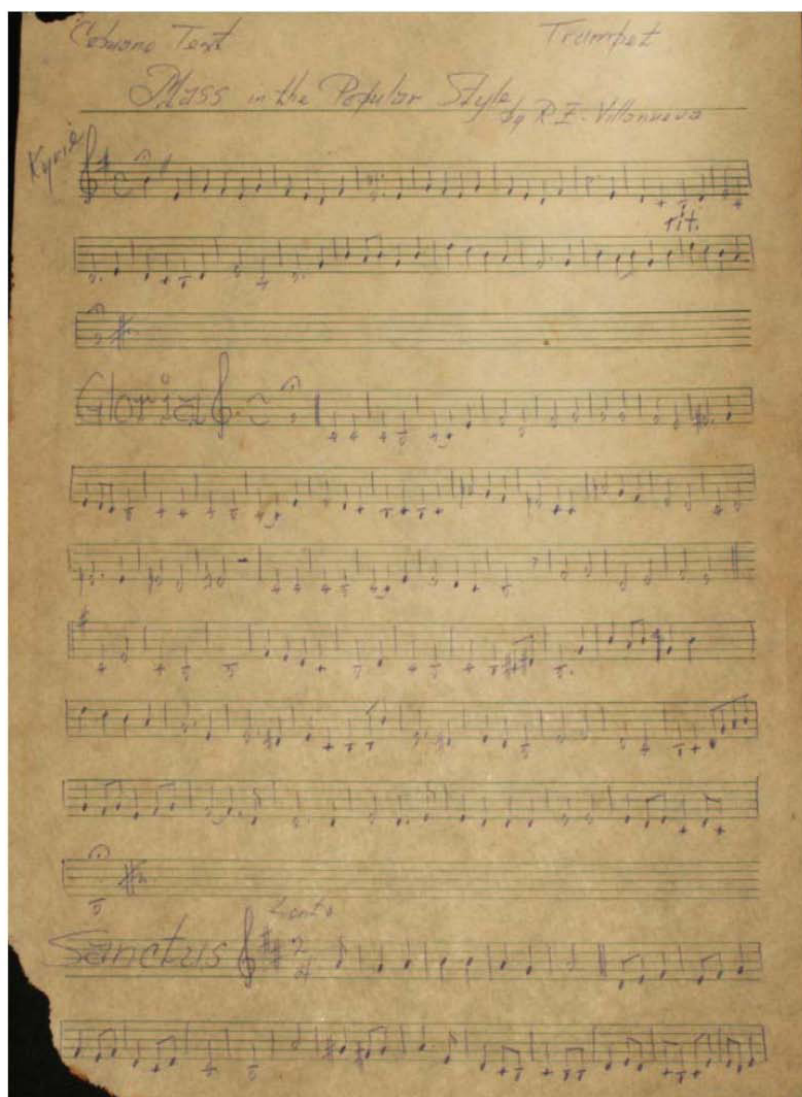 Cebuano Text Trumpet
Mass in the Popular Style
by R. E. Villanueva
Kyrie
rit.
Gloria
Lento
Sanctus 2 4